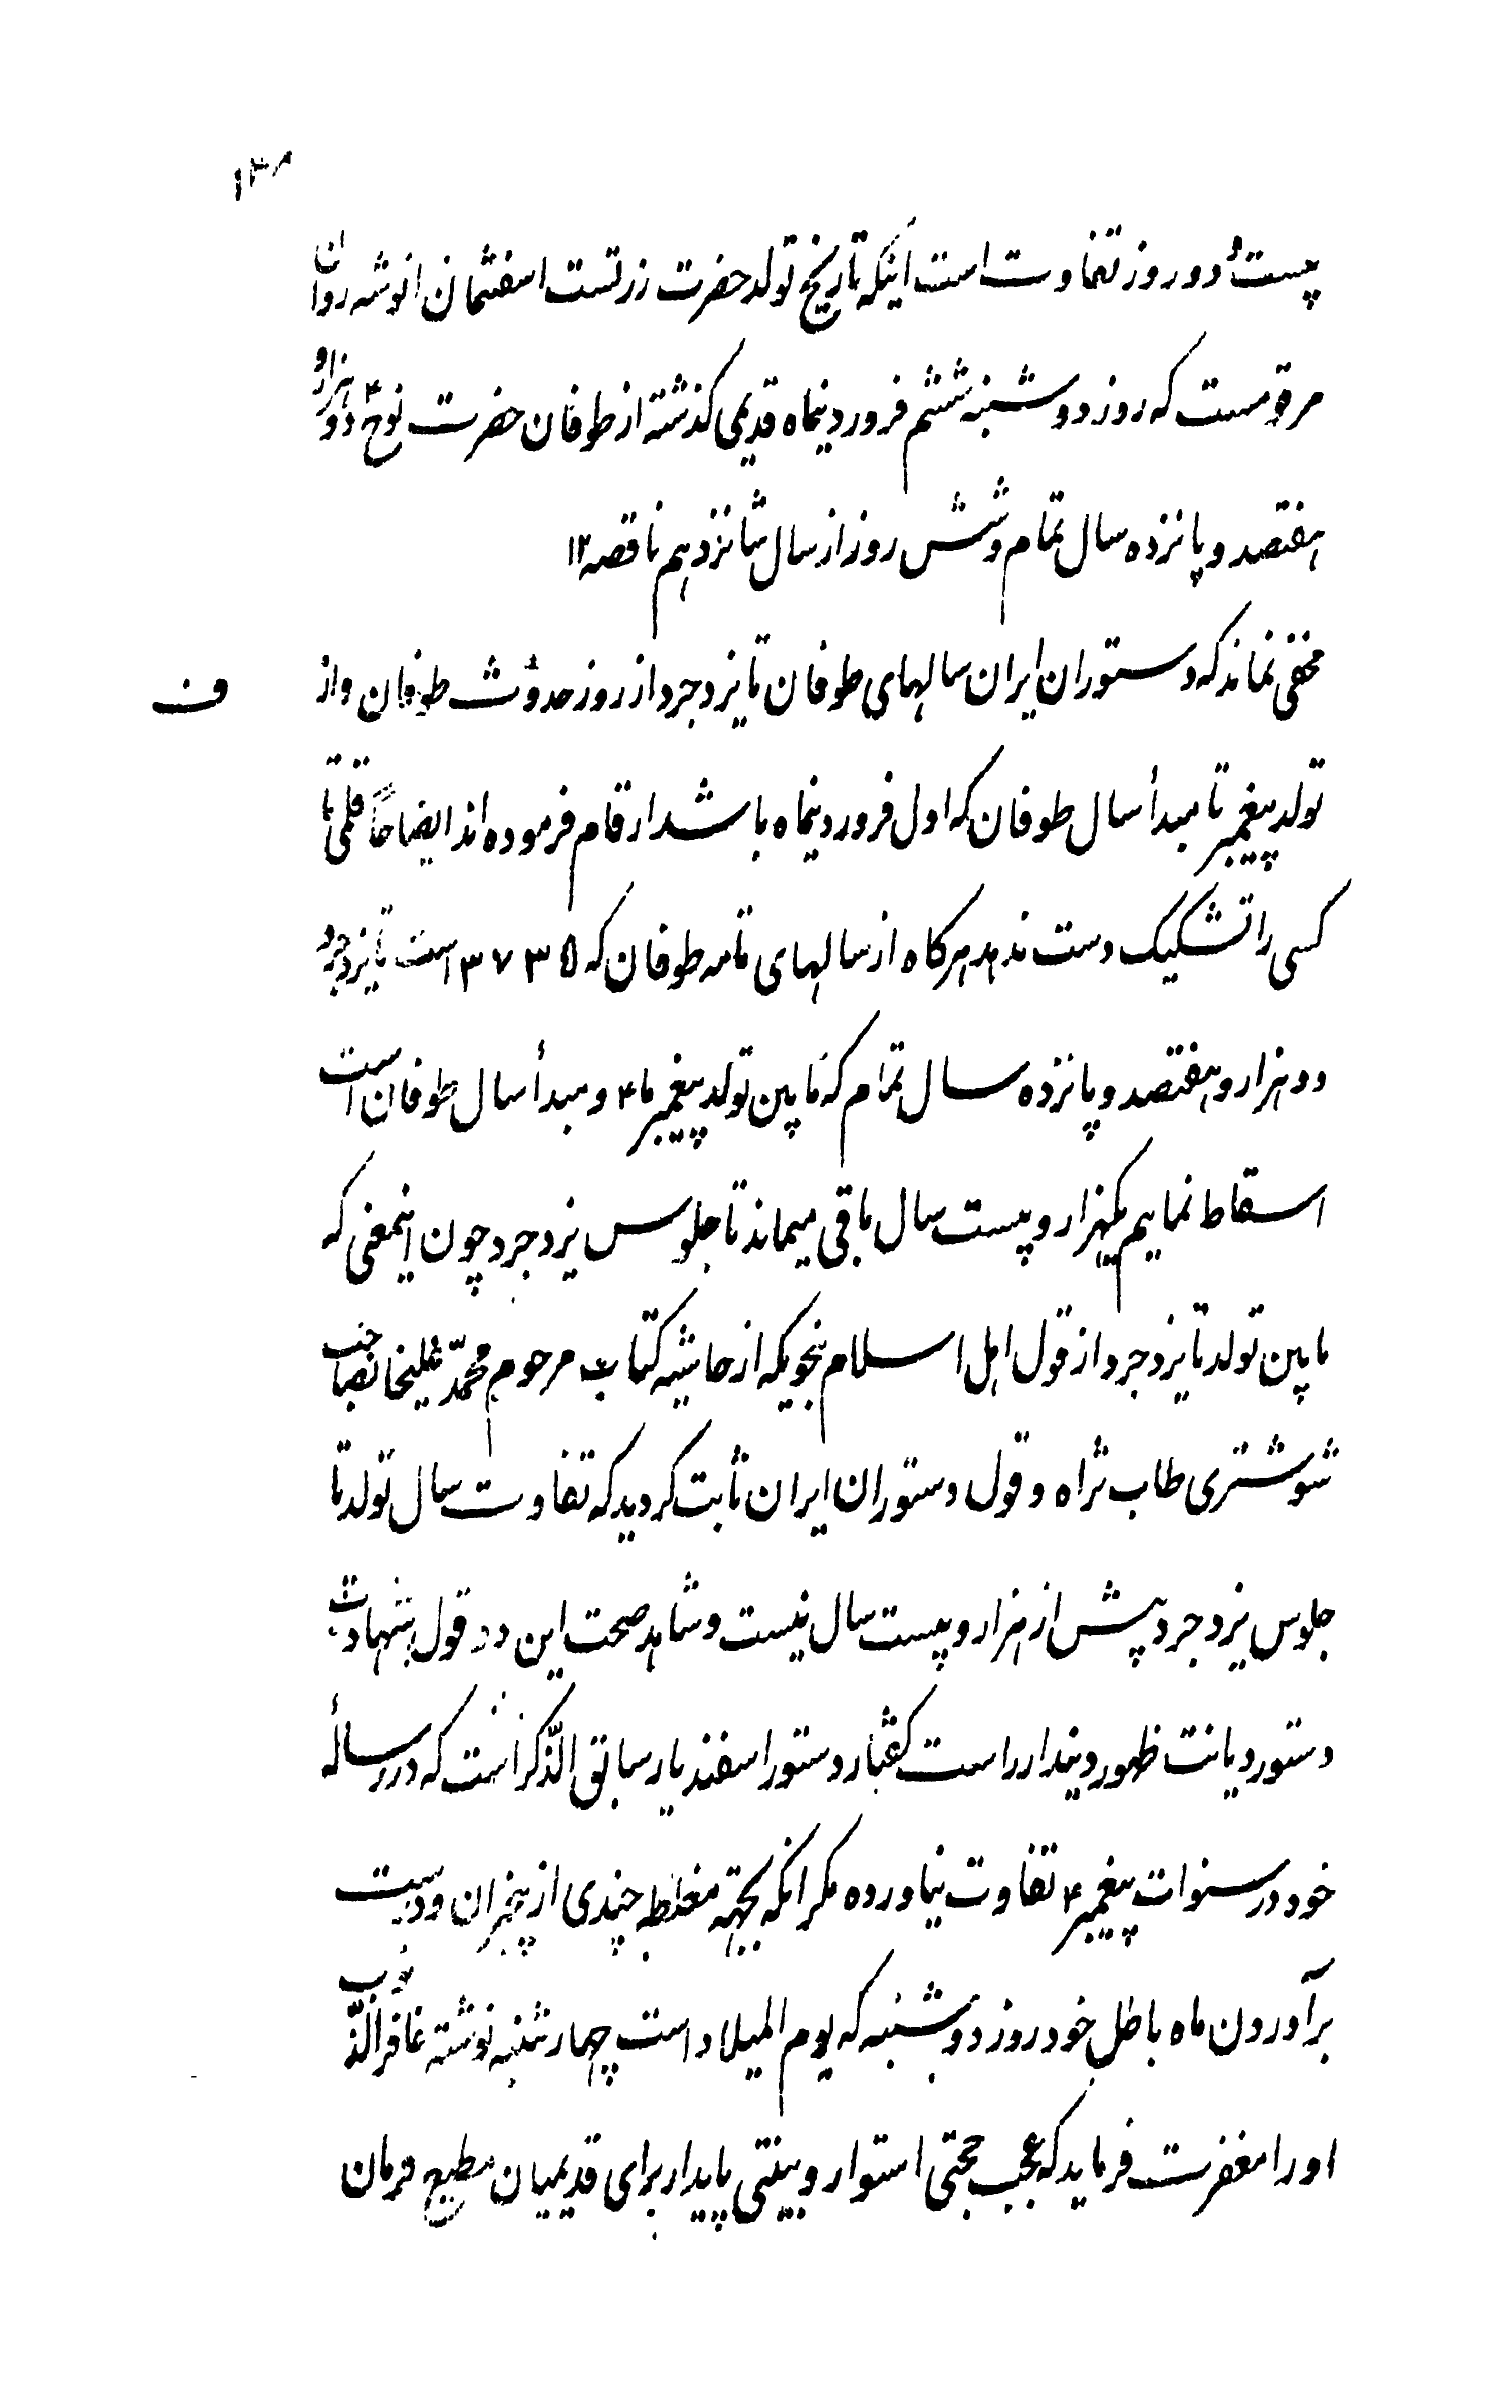 ۱۳۸
بیست و دو روز تفاوت است اینکه تاریخ تولد حضرت زرتست اسفتمان انوشه روان
مرقومست که روز دوشنبه ششم فروردینماه قدیمی کذشته از طوفان حضرت نوح ۴ دو هزار و
هفتصد و پانزده سال تمام و شش روز از سال شانزدهم ناقصه ۱۲
مخفی نماند که دستوران ایران سالهای طوفان تا یزدجرد از روز حدوث طوفان و از
ف
تولد پیغمبر تا مبدأ سال طوفان که اول فروردینماه باشد ارقام فرموده اند ایضاحاً قلمی تا
کسی را تشکیک دست ندهد هرکاه از سالهای تامه طوفان که ۳۷۳۵ است تا یزدجرد
دو هزار و هفتصد و پانزده سال تمام که ما پین تولد پیغمبر ما ۴ و مبدأ سال طوفان است
اسقاط نماییم یکهزار و پیست سال باقی میماند تا جلوس یزدجرد چون اینمعنی که
ما پین تولد تا یزدجرد از قول اهل اسلام بنحویکه از حاشیه کتاب مرحوم محمّد علیخانصاحب
شوشتری طاب ثراه و قول دستوران ایران ثابت کردید که تفاوت سال تولد تا
جلوس یزدجرد پیش از هزار و پیست سال نیست و شاهد صحت این دو قول بشهادت
دستور دیانت ظهور دیندار راست کفتار دستور اسفندیار سابق الذّکر است که در رسالهٔ
خود در سنوات پیغمبر ۴ تفاوت نیاورده مکر انکه بجهته مغلطه چندی از پیخبران و درست
برآوردن ماه باطل خود روز دوشنبه که یوم المیلاد است چهارشنبه نوشته غافر الذّنوب
او را مغفرت فرماید که عجب حجتی استوار و بینتی پایدار برای قدیمیان مطیع فرمان